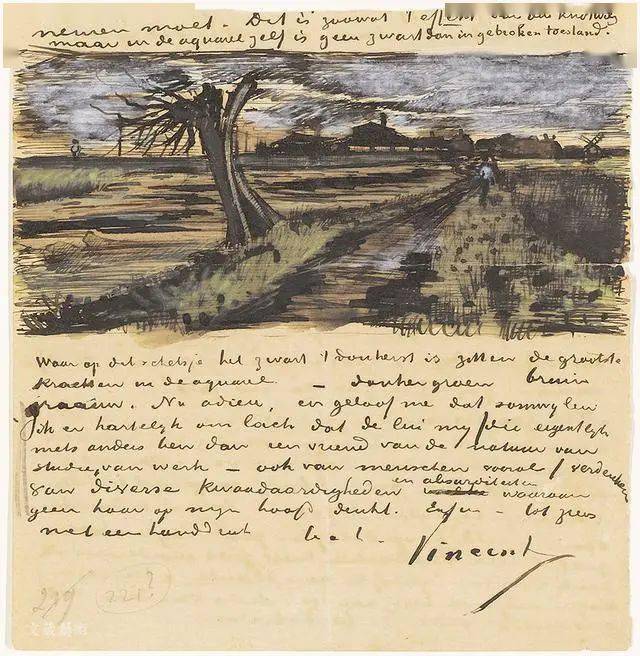 nemen moet. Dit is zoowat 't effekt van den knotwilg
maar in de aquarel zelf is geen zwart dan in gebroken toestand.
Waar op dit schetsje het zwart 't donkerst is zitten de grootste
krachten in de aquarel – donkergroen bruin
graauw. Nu adieu, en geloof me dat somwylen
ik er hartelyk om lach dat de lui my die eigentlyk
niets anders ben dan een vriend van de natuur van
studie, van werk – ook van menschen vooral / verdenken
van diverse kwaadaardigheden en absurditeiten waaraan
geen haar op myn hoofd denkt. Enfin – tot ziens
met een handdruk
Vincent
219 221?